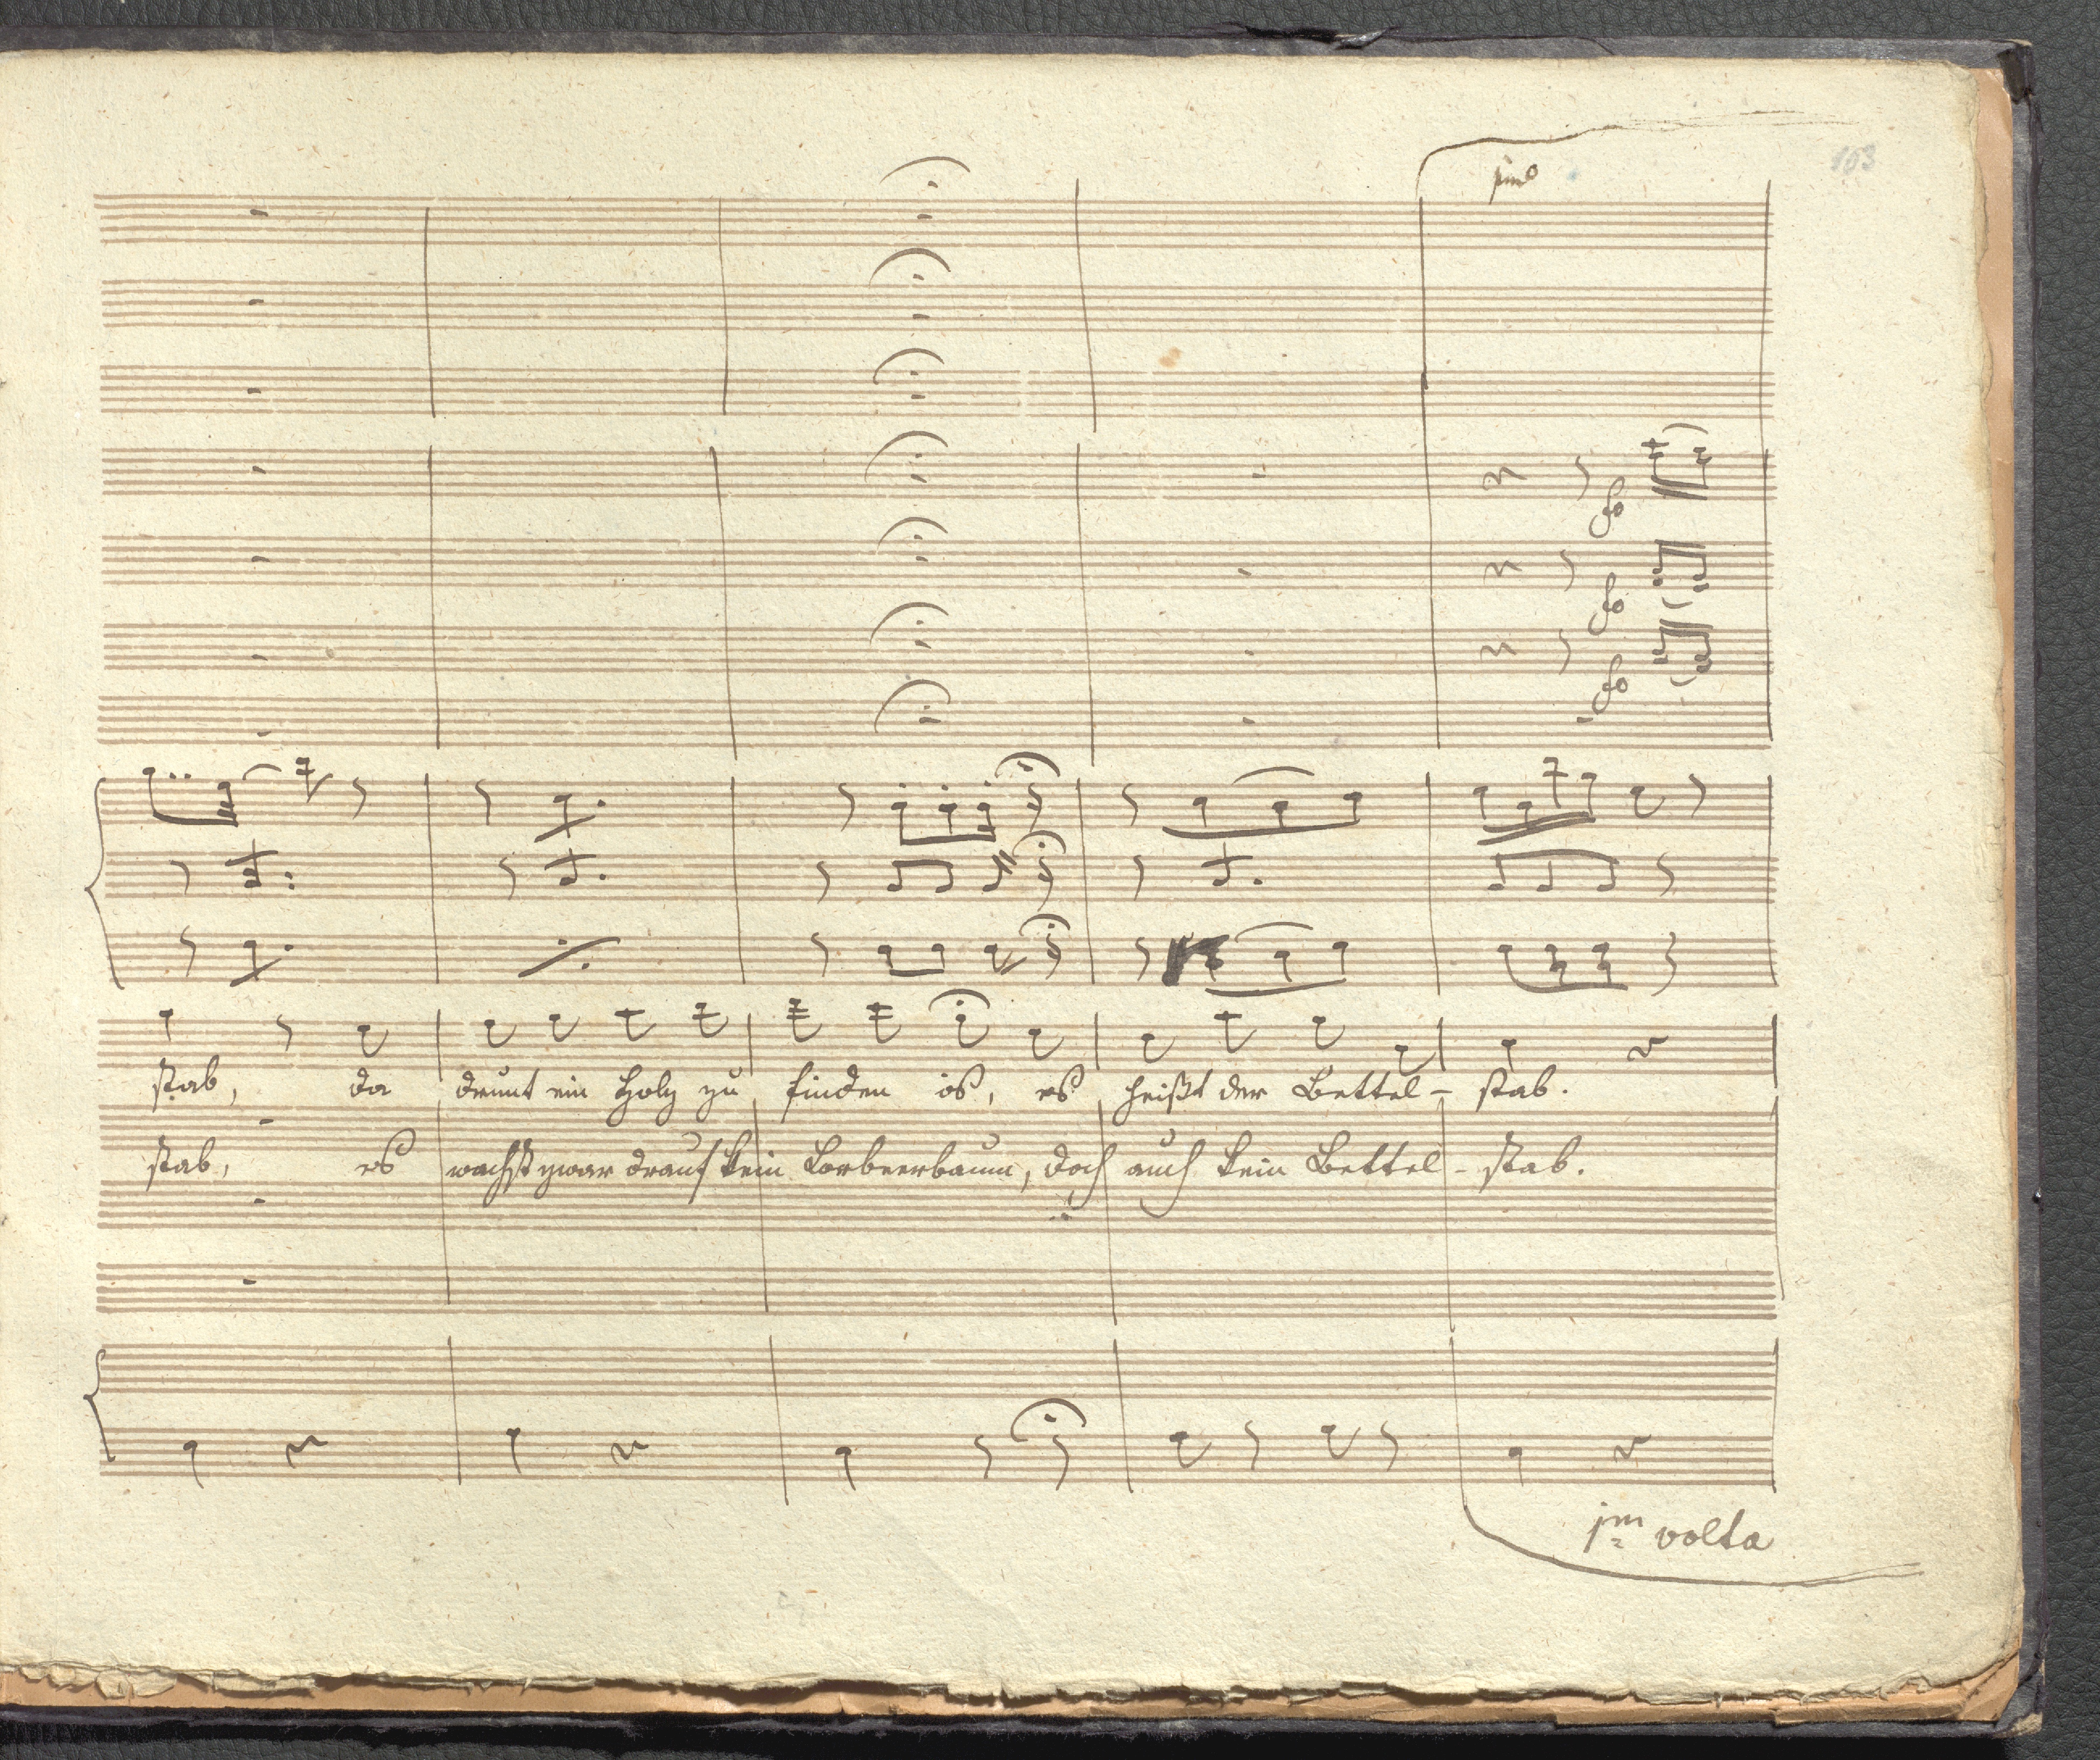 103
imo
fo
fo
fo
stab, da drunt ein Holz zu finden is, es heißt der Bettel- stab.
stab, es wachst zwar drauf kein Lorbeerbaum, doch auch kein Bettel- stab.
jm volta